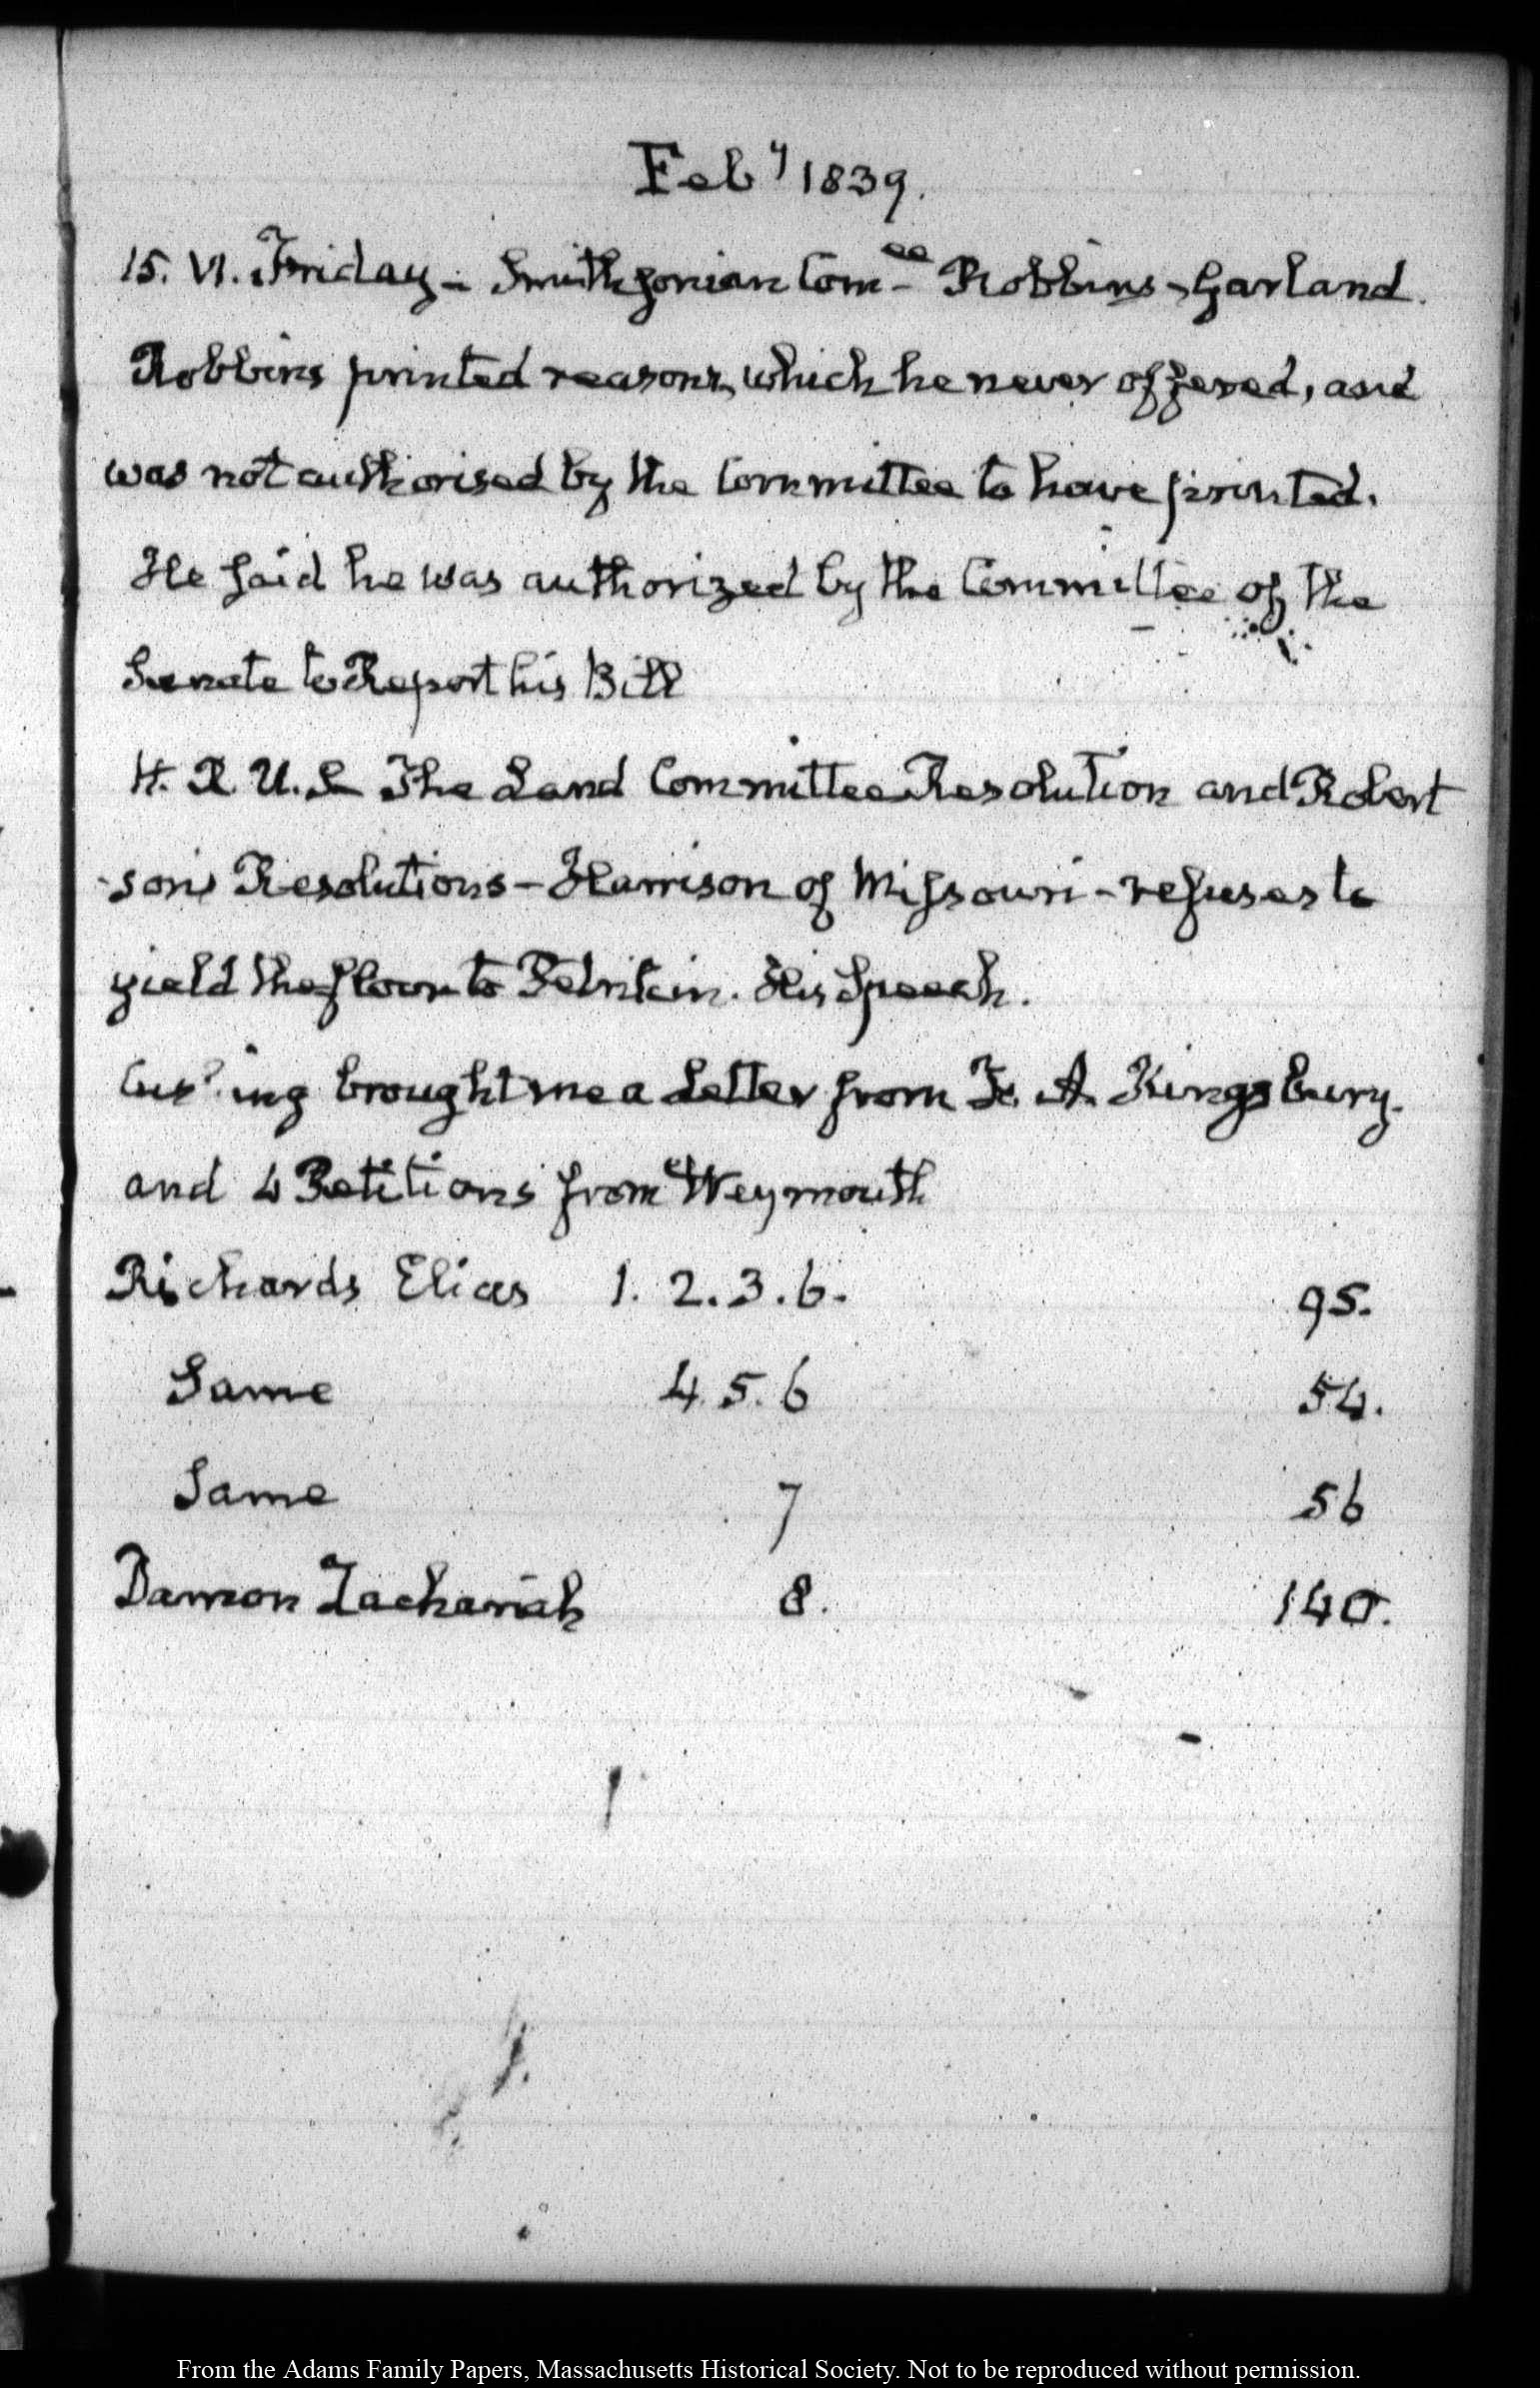 Feby 1839.
15. VI. Friday – Smithsonian Comee – Robbins – Garland.
Robbins printed reasons, which he never offered, and
was not authorised by the Committee to have printed.
He said he was authorized by the Committee of the
Senate to Report his Bill
H. R. U. S. The Land Committee Resolution and Robert
-son's Resolutions – Harrison of Missouri – refuses to
yield the floor to Petrikin. His Speech.
Cushing brought me a Letter from F. A. Kingsbury.
and 4 Petitions from Weymouth
Richards Elias 1. 2. 3. 6. 95.
Same 4. 5. 6 54.
Same 7 56
Damon Zachariah 8. 140.
From the Adams Family Papers, Massachusetts Historical Society. Not to be reproduced without permission.